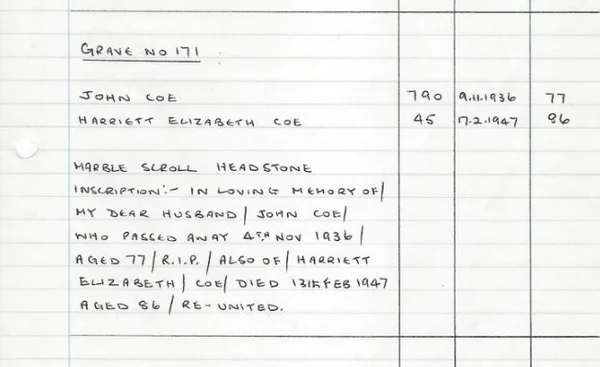 GRAVE NO 171
JOHN COE 790 9.11.1936 77
HARRIETT ELIZABETH COE 45 17.2.1947 86
MARBLE SCROLL HEADSTONE
INSCRIPTION:- IN LOVING MEMORY OF/
MY DEAR HUSBAND / JOHN COE/
WHO PASSED AWAY 4TH NOV 1936 /
AGED 77 / R.I.P. / ALSO OF / HARRIETT
ELIZABETH / COE/ DIED 13TH FEB 1947
AGED 86 / RE-UNITED.